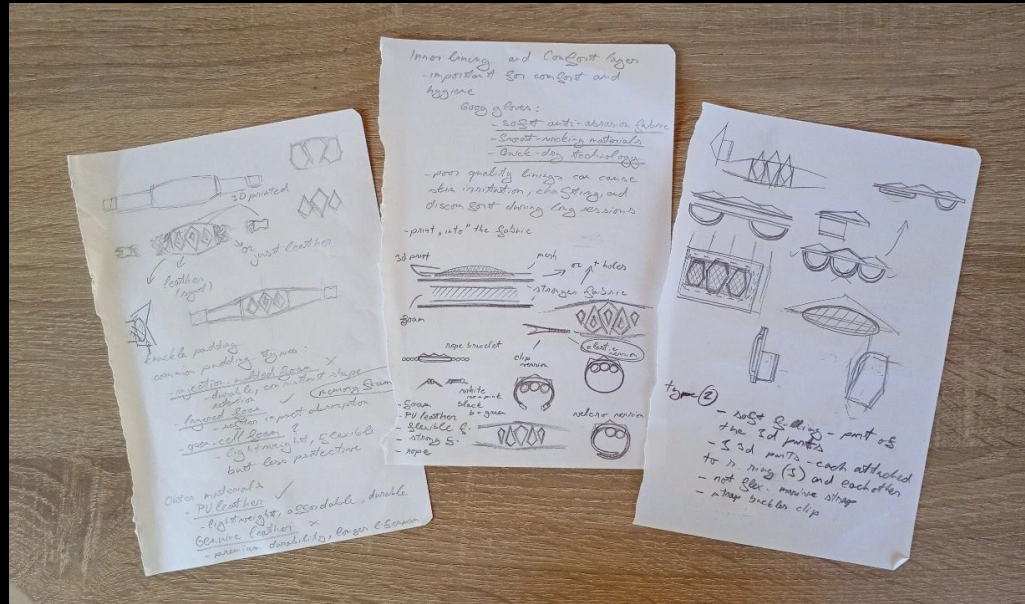 3D printed
or
just leather
leather
knuckle padding
common padding types:
- injection molded foam ×
- durable, consistent shape
retention
(memory foam
- layered foam ✓
- better impact absorption
- open-cell foam ?
- lightweight, flexible
but less protective
Outer materials
- PU leather ✓
- lightweight, affordable, durable
Genuine leather ×
- premium durability, longer lifespan
Inner lining and Comfort layer
- important for comfort and
hygiene
Good gloves:
- soft anti-abrasion fabric
- Sweat-wicking materials
- Quick-dry technology
- poor quality linings can cause
skin irritation, chaffing, and
discomfort during long sessions
- print "into" the fabric
3d print
mesh
or + holes
stronger fabric
foam
rope bracelet
clip
version
elastic
version
white
pink
black
green
velcro version
- foam
- PU leather
- flexible f.
- strong f.
- rope
type (2)
- soft filling - part of
the 3d parts
- 3 3d parts - each attached
to a ring (3) and eachother
- not flex. massive strap
- strap buckles clip